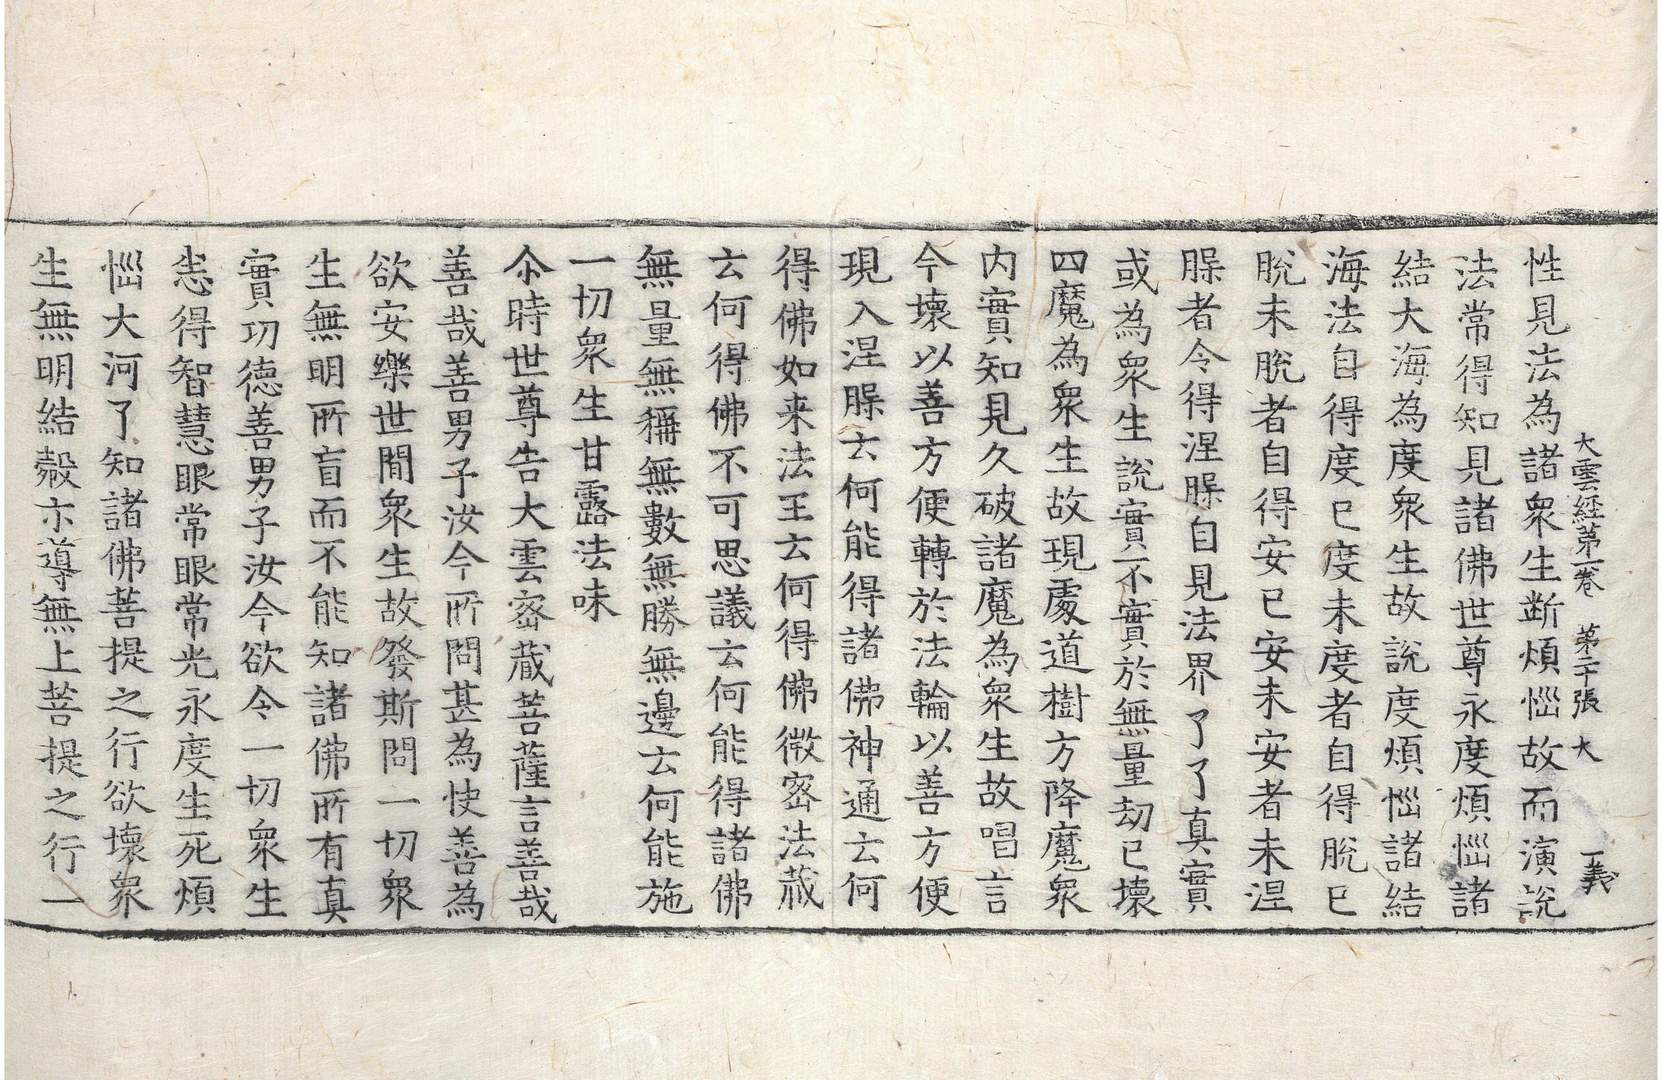 大雲経第一卷　第二十張　大　一義
性見法為諸衆生断煩惱故而演說
法常得知見諸佛世尊永度煩惱諸
結大海為度衆生故說度煩惱諸結
海法自得度已度未度者自得脫已
脫未脫者自得安已安未安者未涅
槃者令得涅槃自見法界了了真實
或為衆生說實不實於無量劫已壞
四魔為衆生故現處道樹方降魔衆
内實知見久破諸魔為衆生故唱言
今壞以善方便轉於法輪以善方便
現入涅槃云何能得諸佛神通云何
得佛如来法王云何得佛微密法蔵
云何得佛不可思議云何能得諸佛
無量無稱無數無勝無邊云何能施
一切衆生甘露法味
尒時世尊告大雲密蔵菩薩言善哉
善哉善男子汝今所問甚為快善為
欲安樂世間衆生故發斯問一切衆
生無明所盲而不能知諸佛所有真
實功徳善男子汝今欲令一切衆生
悉得智慧眼常眼常光永度生死煩
惱大河了知諸佛菩提之行欲壞衆
生無明結㲉亦導無上菩提之行一